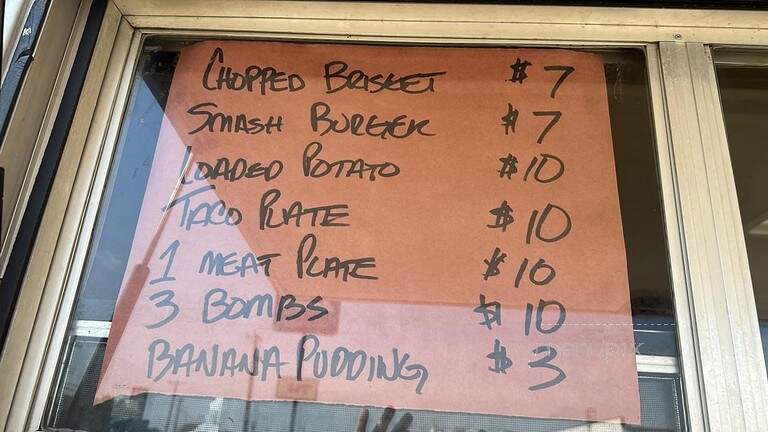 CHOPPED BRISKET $7
SMASH BURGER $7
LOADED POTATO $10
TACO PLATE $10
1 MEAT PLATE $10
3 BOMBS $10
BANANA PUDDING $3